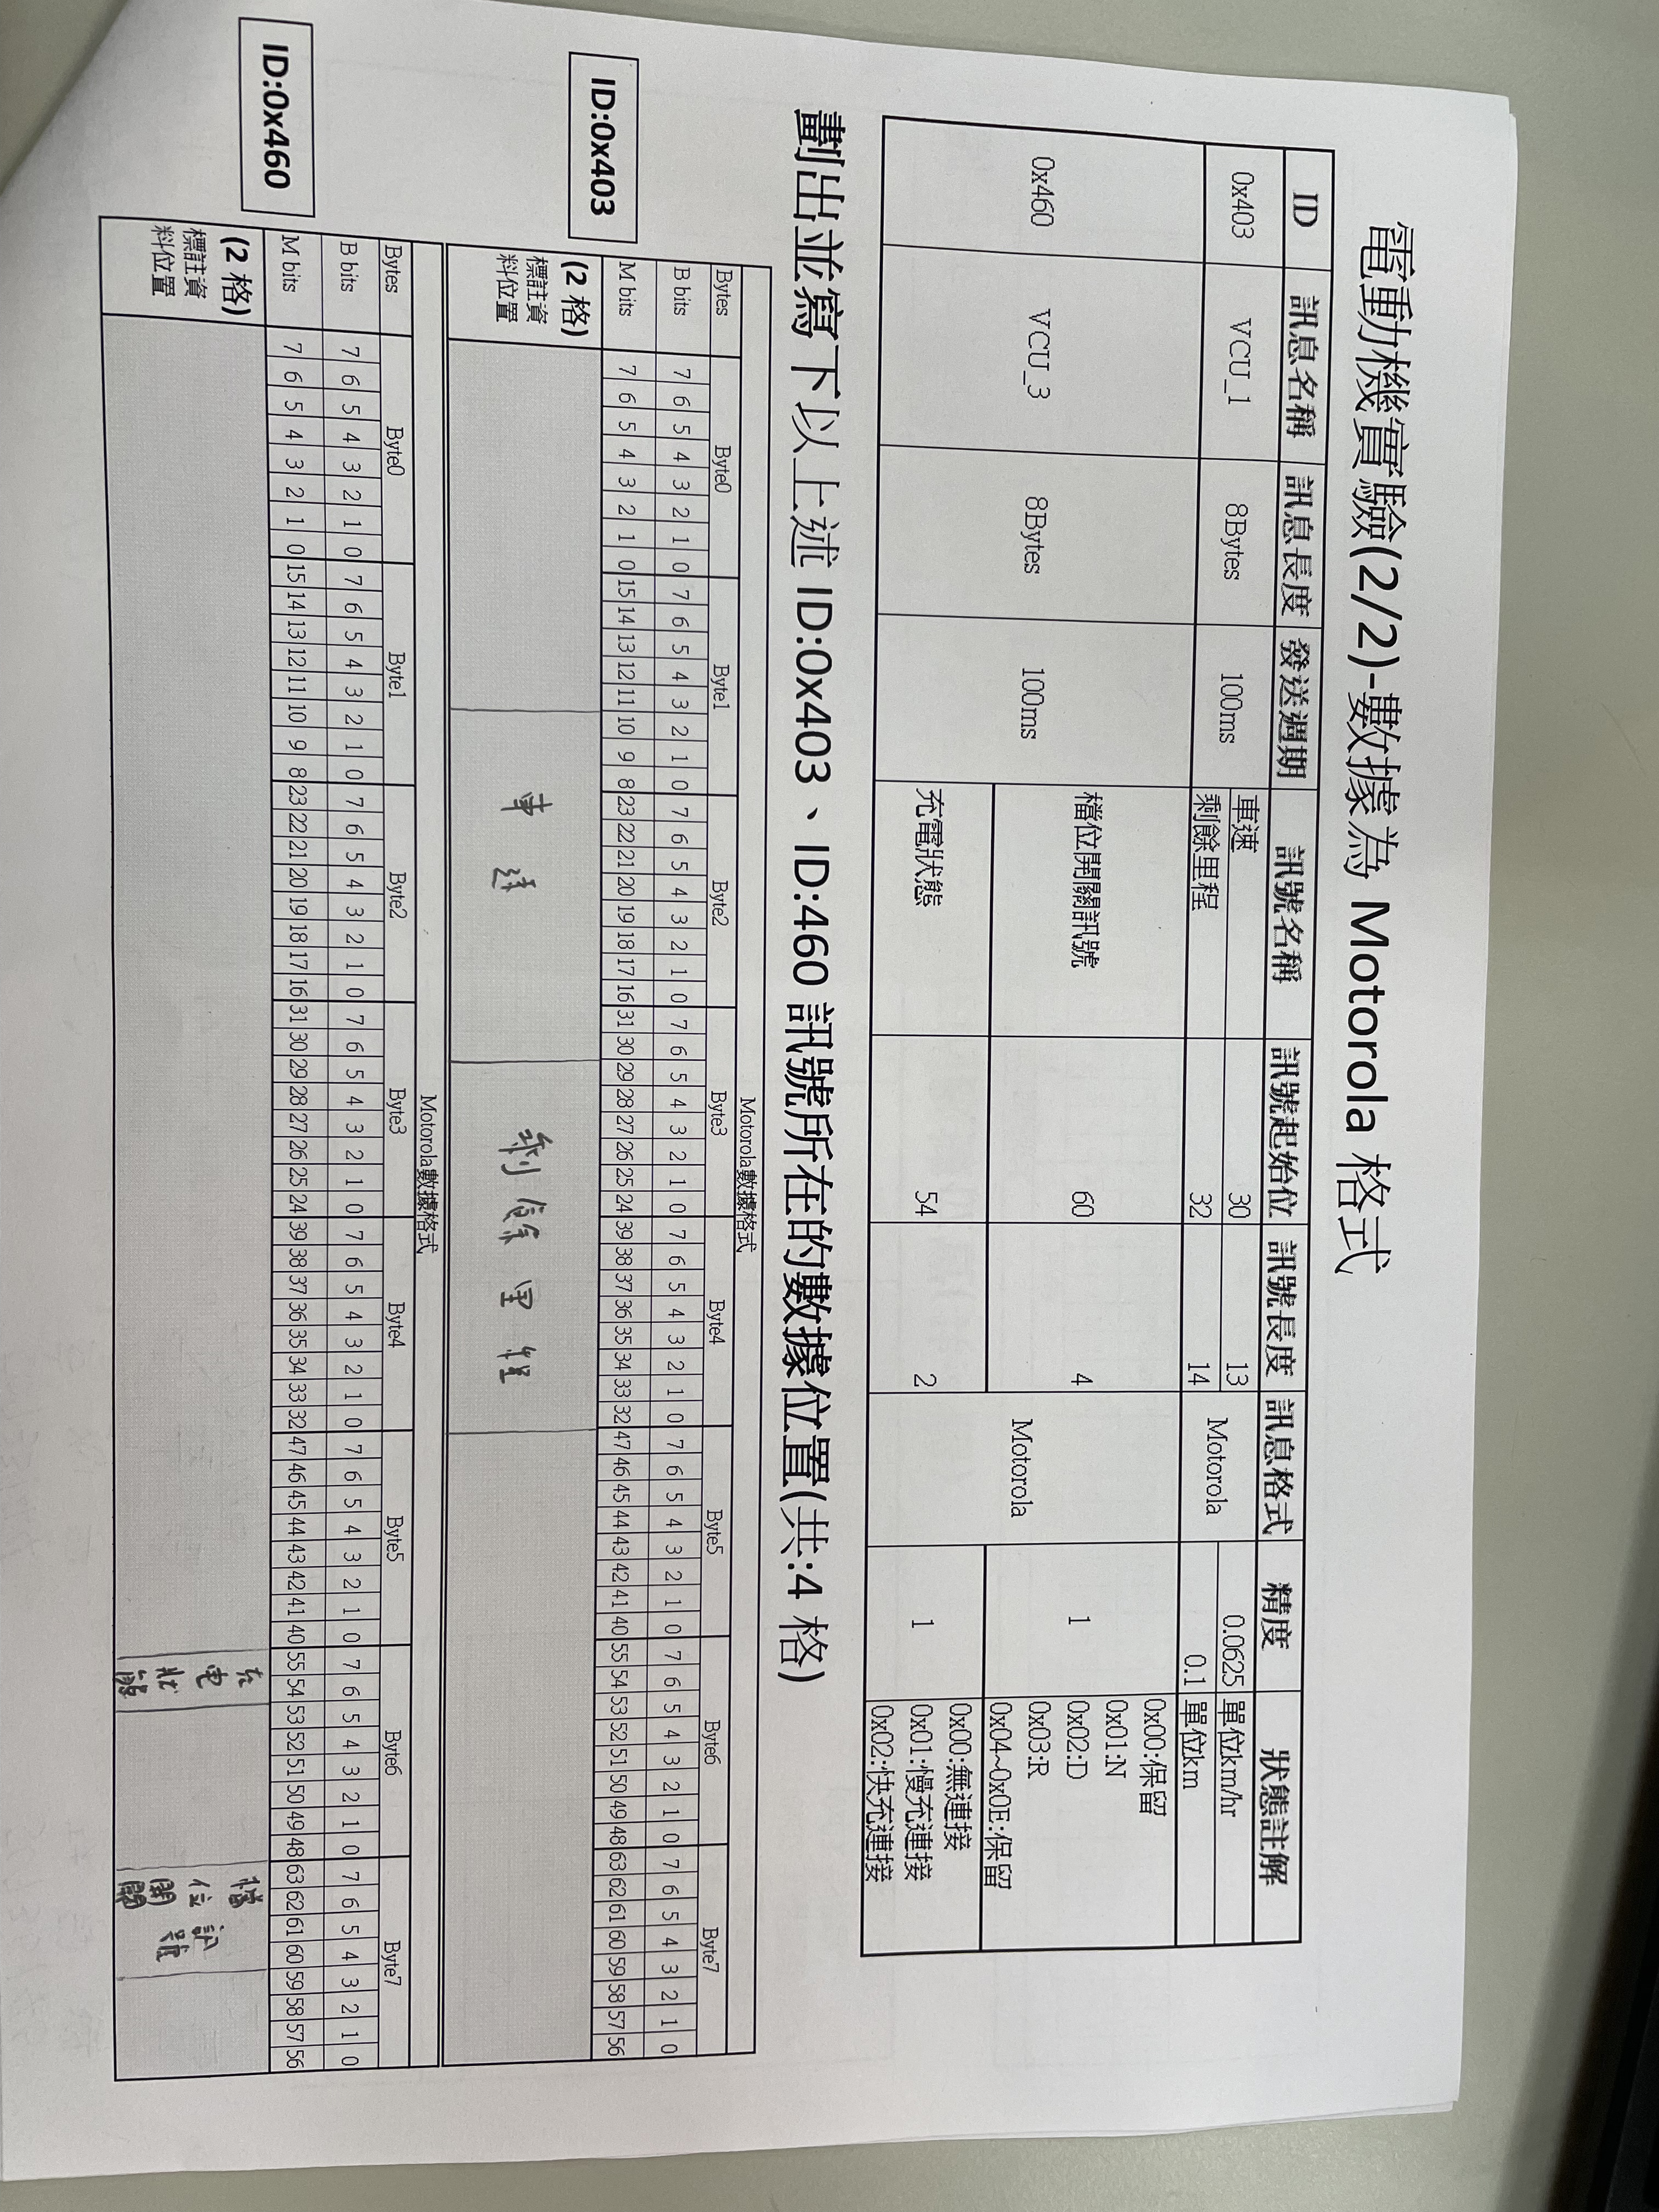 電動機實驗(2/2)-數據為 Motorola 格式
ID 訊息名稱 訊息長度 發送週期 訊號名稱 訊號起始位 訊號長度 訊息格式 精度 狀態註解
0x403 VCU_1 8Bytes 100ms 車速 30 13 Motorola 0.0625 單位km/hr
剩餘里程 32 14 0.1 單位km
0x460 VCU_3 8Bytes 100ms 檔位開關訊號 60 4 Motorola 1 0x00:保留
0x01:N
0x02:D
0x03:R
0x04~0x0E:保留
充電狀態 54 2 1 0x00:無連接
0x01:慢充連接
0x02:快充連接
劃出並寫下以上述 ID:0x403、ID:460 訊號所在的數據位置(共:4 格)
ID:0x403
Motorola數據格式
Bytes Byte0 Byte1 Byte2 Byte3 Byte4 Byte5 Byte6 Byte7
B bits 7 6 5 4 3 2 1 0 7 6 5 4 3 2 1 0 7 6 5 4 3 2 1 0 7 6 5 4 3 2 1 0 7 6 5 4 3 2 1 0 7 6 5 4 3 2 1 0 7 6 5 4 3 2 1 0 7 6 5 4 3 2 1 0
M bits 7 6 5 4 3 2 1 0 15 14 13 12 11 10 9 8 23 22 21 20 19 18 17 16 31 30 29 28 27 26 25 24 39 38 37 36 35 34 33 32 47 46 45 44 43 42 41 40 55 54 53 52 51 50 49 48 63 62 61 60 59 58 57 56
(2 格)
標註資
料位置
車速 剩餘里程
ID:0x460
Motorola數據格式
Bytes Byte0 Byte1 Byte2 Byte3 Byte4 Byte5 Byte6 Byte7
B bits 7 6 5 4 3 2 1 0 7 6 5 4 3 2 1 0 7 6 5 4 3 2 1 0 7 6 5 4 3 2 1 0 7 6 5 4 3 2 1 0 7 6 5 4 3 2 1 0 7 6 5 4 3 2 1 0 7 6 5 4 3 2 1 0
M bits 7 6 5 4 3 2 1 0 15 14 13 12 11 10 9 8 23 22 21 20 19 18 17 16 31 30 29 28 27 26 25 24 39 38 37 36 35 34 33 32 47 46 45 44 43 42 41 40 55 54 53 52 51 50 49 48 63 62 61 60 59 58 57 56
(2 格)
標註資
料位置
充電狀態 檔位開關訊號